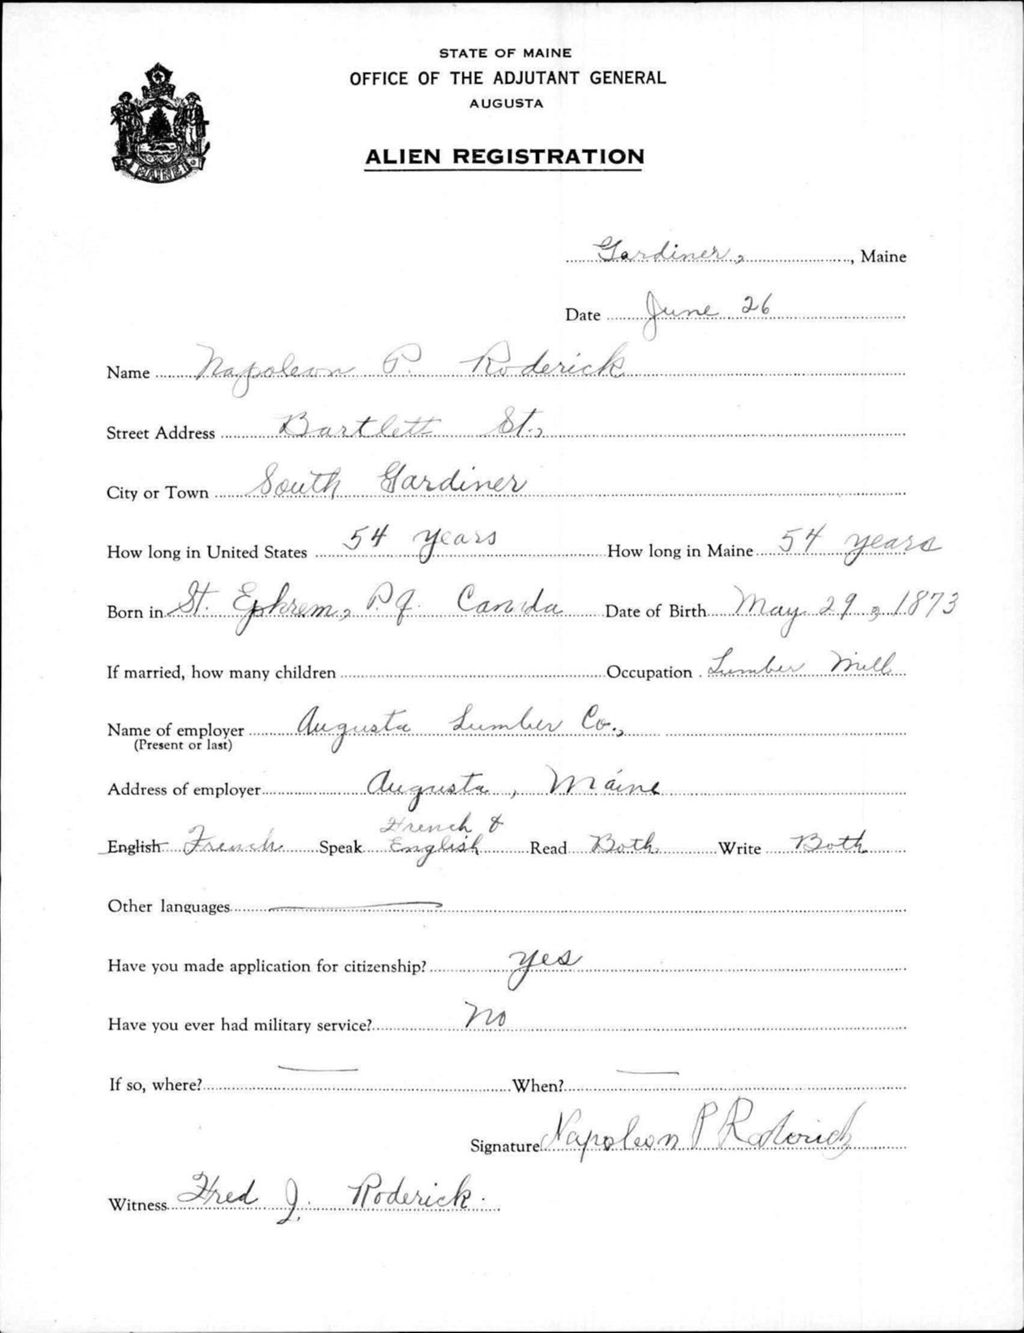 STATE OF MAINE
OFFICE OF THE ADJUTANT GENERAL
AUGUSTA
ALIEN REGISTRATION
MAINE
Gardiner, , Maine
Date June 26
Name Napoleon P. Roderick
Street Address Bartlett St.,
City or Town South Gardiner
How long in United States 54 years How long in Maine 54 years
Born in St. Ephrem, P.Q. Canada Date of Birth May 29, 1873
If married, how many children Occupation Lumber Mill
Name of employer Augusta Lumber Co.,
(Present or last)
Address of employer Augusta, Maine
English French Speak French & English Read Both Write Both
Other languages
Have you made application for citizenship? yes
Have you ever had military service? No
If so, where? When?
Signature Napoleon P Roderick
Witness Fred J. Roderick.